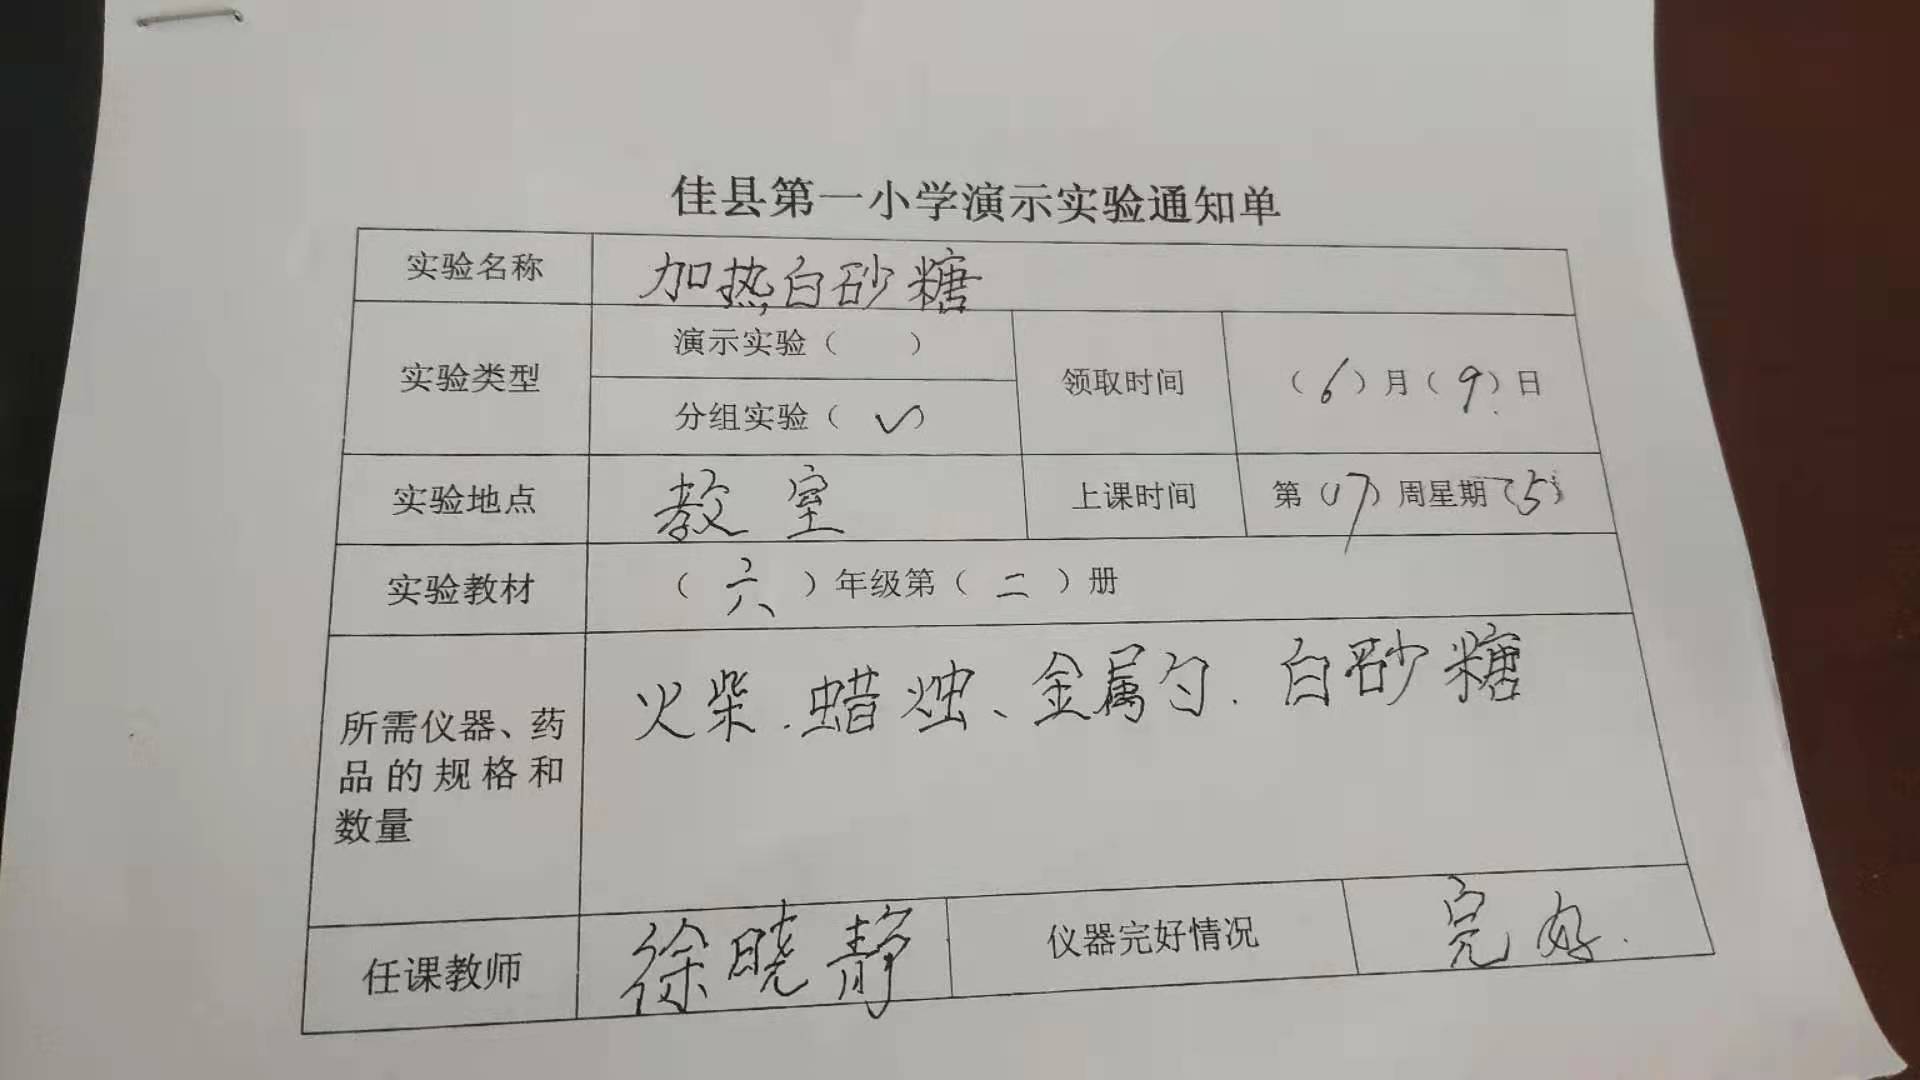 佳县第一小学演示实验通知单
实验名称 加热白砂糖
实验类型 演示实验（ ） 领取时间 （6）月（9）日
分组实验（✓）
实验地点 教室 上课时间 第（17）周星期（5）
实验教材 （六）年级第（二）册
所需仪器、药品的规格和数量 火柴.蜡烛、金属勺.白砂糖
任课教师 徐晓静 仪器完好情况 完好.